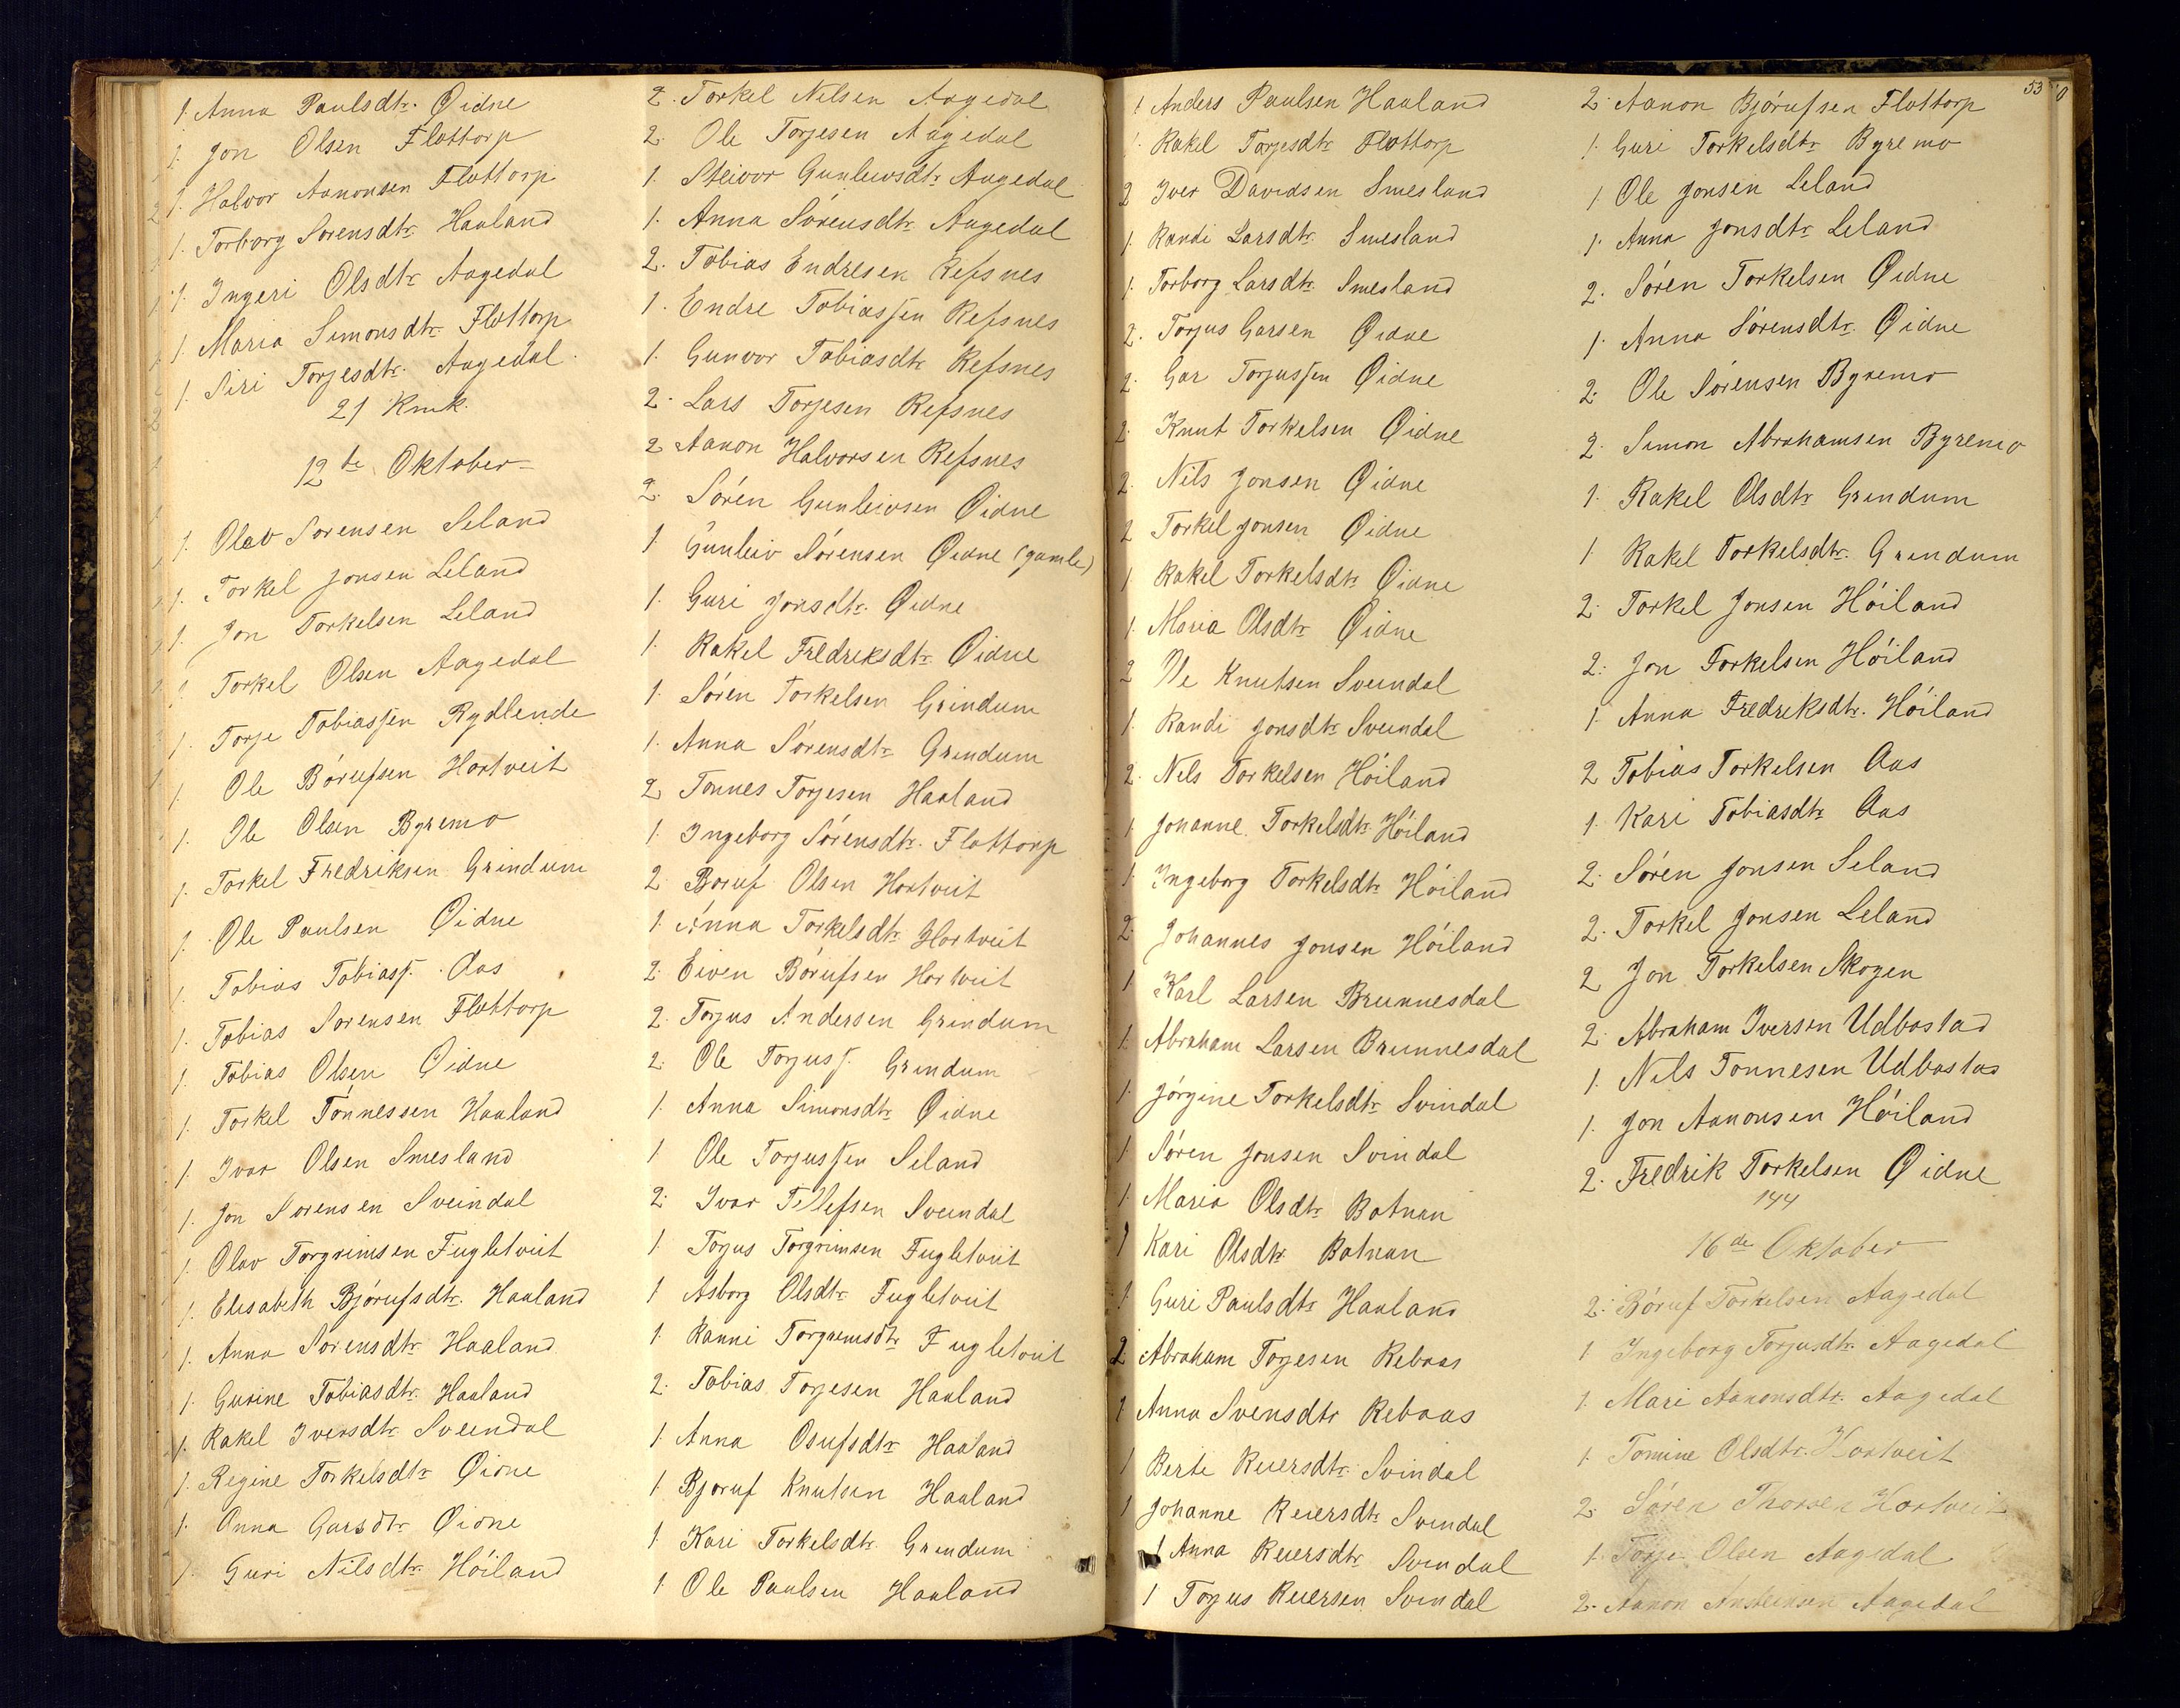 1. Anna Paulsdtr. Øidne
1. Jon Olsen Flottorp
1. Halvor Aanonsen Flottorp
1. Torborg Sørensdtr. Haaland
1. Ingeri Olsdtr Aagedal
1. Maria Simonsdtr. Flottorp
1. Siri Torjesdtr. Aagedal.
21 Kmk.
12te Oktober
1. Olav Sørensen Seland
1. Torkel Jonsen Leland
1. Jon Torkelsen Leland
1. Torkel Olsen Aagedal
1. Torje Tobiassen Rydlende
1. Ole Børufsen Hortveit
1. Ole Olsen Byremo
1. Torkel Fredriksen Grindum
1. Ole Paulsen Øidne
1. Tobias Tobiass. Aas
1. Tobias Sørensen Flottorp
1. Tobias Olsen Øidne
1. Torkel Tønnessen Haaland
1. Ivar Olsen Smesland
1. Jon Sørensen Sveindal
1. Olav Torgrimsen Fugletveit
1. Elisabeth Bjørufsdtr. Haaland
1. Anna Sørensdtr. Haaland
1. Gurine Tobiasdtr. Haaland
1. Rakel Iversdtr Sveindal
1. Regine Torkelsdtr Øidne
1. Anna Garsdtr Øidne
1. Guri Nilsdtr. Høiland
2. Torkel Nilsen Aagedal
2. Ole Torjesen Aagedal
1. Steivor Gunleivsdtr. Aagedal
1. Anna Sørensdtr. Aagedal
2. Tobias Endresen Refsnes
1. Endre Tobiassen Refsnes
1. Gunvor Tobiasdtr Refsnes
2. Lars Torjesen Refsnes
2 Aanon Halvorsen Refsnes
2. Søren Gunleivsen Øidne
1 Gunleiv Sørensen Øidne (gamle)
1. Guri Jonsdtr. Øidne
1. Rakel Fredriksdtr. Øidne
1. Søren Torkelsen Grindum
1. Anna Sørensdtr. Grindum
2 Tønnes Torjesen Haaland
1. Ingeborg Sørensdtr. Flottorp
2. Børuf Olsen Hortveit
1. Anna Torkelsdtr. Hortveit
2. Eiven Børufsen Hortveit
2. Torjus Andersen Grindum
2. Ole Torjuss. Grindum
1. Anna Simonsdtr. Øidne
1 Ole Torjussen Seland
2. Ivar Tellefsen Sveindal
1. Torjus Torgrimsen Fugletveit
1 Asborg Olsdtr Fugletveit
1. Ranni Torgrimsdtr Fugletveit
2. Tobias Torjesen Haaland
1. Anna Osufsdtr Haaland
1. Bjøruf Knutsen Haaland
1. Kari Torkelsdtr. Grindum
1. Ole Paulsen Haaland
1 Anders Paulsen Haaland
1. Rakel Torjesdtr Flottorp
2 Iver Davidsen Smesland
1. Randi Larsdtr. Smesland
1. Torborg Larsdtr. Smesland
2. Torjus Garsen Øidne
2. Gar Torjussen Øidne
2. Knut Torkelsen Øidne
2. Nils Jonsen Øidne
2 Torkel Jonsen Øidne
1 Rakel Torkelsdtr. Øidne
1. Maria Olsdtr Øidne
2 Ole Knutsen Sveindal
1. Randi Jonsdtr. Sveindal
2. Nils Torkelsen Høiland
1 Johanne Torkelsdtr. Høiland
1. Ingeborg Torkelsdtr Høiland
2. Johannes Jonsen Høiland
1 Karl Larsen Brunnesdal
1. Abraham Larsen Brunnesdal
1. Jørgine Torkelsdtr. Svindal
1 Søren Jonsen Svindal
1. Maria Olsdtr. Botnan
1 Kari Olsdtr. Botnan
1 Guri Paulsdtr Haaland
2. Abraham Torjesen Rebaas
1 Anna Svensdtr Rebaas
1 Berte Reiersdtr. Svindal
1 Johanne Reiersdtr Svindal
1 Anna Reiersdtr Svindal
1 Torjus Reiersen Svindal
53
2. Aanon Bjørufsen Flottorp
1. Guri Torkelsdtr. Byremo
1 Ole Jonsen Leland
1. Anna Jonsdtr Leland
2. Søren Torkelsen Øidne
1. Anna Sørensdtr. Øidne
2. Ole Sørensen Byremo
2. Simon Abrahamsen Byremo
1. Rakel Olsdtr Grindum
1 Rakel Torkelsdtr. Grindum
2. Torkel Jonsen Høiland
2. Jon Torkelsen Høiland
1. Anna Fredriksdtr. Høiland
2 Tobias Torkelsen Aas
1. Kari Tobiasdtr Aas
2. Søren Jonsen Seland
2. Torkel Jonsen Leland
2 Jon Torkelsen Skogen
2. Abraham Iversen Udbostad
1. Nils Tønnesen Udbostad
1. Jon Aanonsen Høiland
2. Fredrik Torkelsen Øidne
144
16de Oktober
2. Børuf Torkelsen Aagedal
1 Ingeborg Torjusdtr. Aagedal
1. Mari Aanonsdtr. Aagedal
1. Tomine Olsdtr. Hortveit
2. Søren Thorsen Hortveit
1. Torje Olsen Aagedal
2. Aanon Aagedal